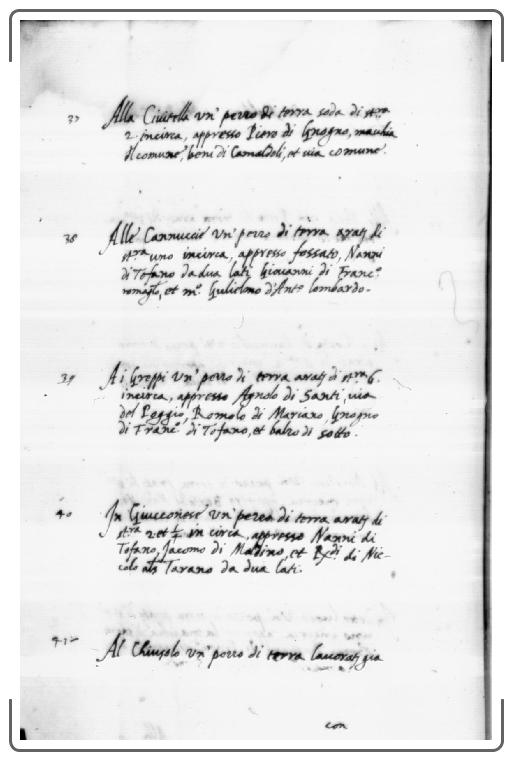 37 Alla Ciuitella un' pezzo di terra soda di st.ra
2. incirca, appresso Piero di Gnogno, macchia
del comune, beni di Camaldoli, et uia comune.
38 Alle Cannuccie un' pezzo di terra arat. di
st.ra uno incirca, appresso fossato, Nanni
di Tofano da dua lati, Giouanni di Franc.o
et m.o Gulielmo d'Ant.o lombardo.
39 Ai Greppi un' pezzo di terra arat. di st.ra 6.
incirca, appresso Agnolo di Santi, uia
del Poggio, Romolo di Mariano, Gnogno
di Franc.o di Tofano, et balzo di sotto.
40 In un' pezzo di terra arat. di
st.ra 2 et 1/2 incirca, appresso Nanni di
Tofano, Jacomo di et di Nic-
colo Tarano da dua lati.
41 Al un' pezzo di terra gia
con